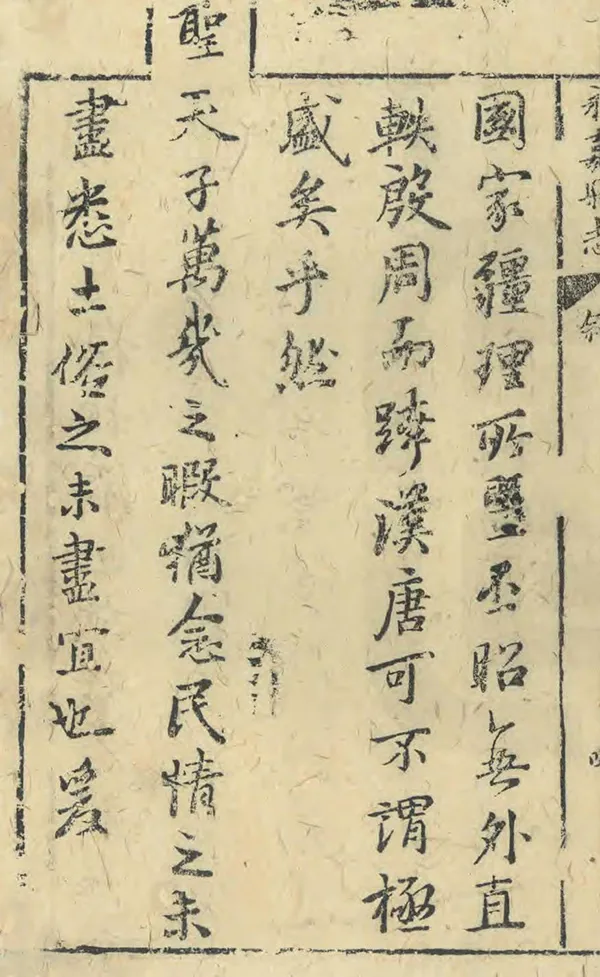 永嘉縣志
國家疆理所曁丕昭無外直
軼殷周而躋漢唐可不謂極
盛矣乎然
聖天子萬幾之暇猶念民情之未
盡悉土俗之未盡宜也爰